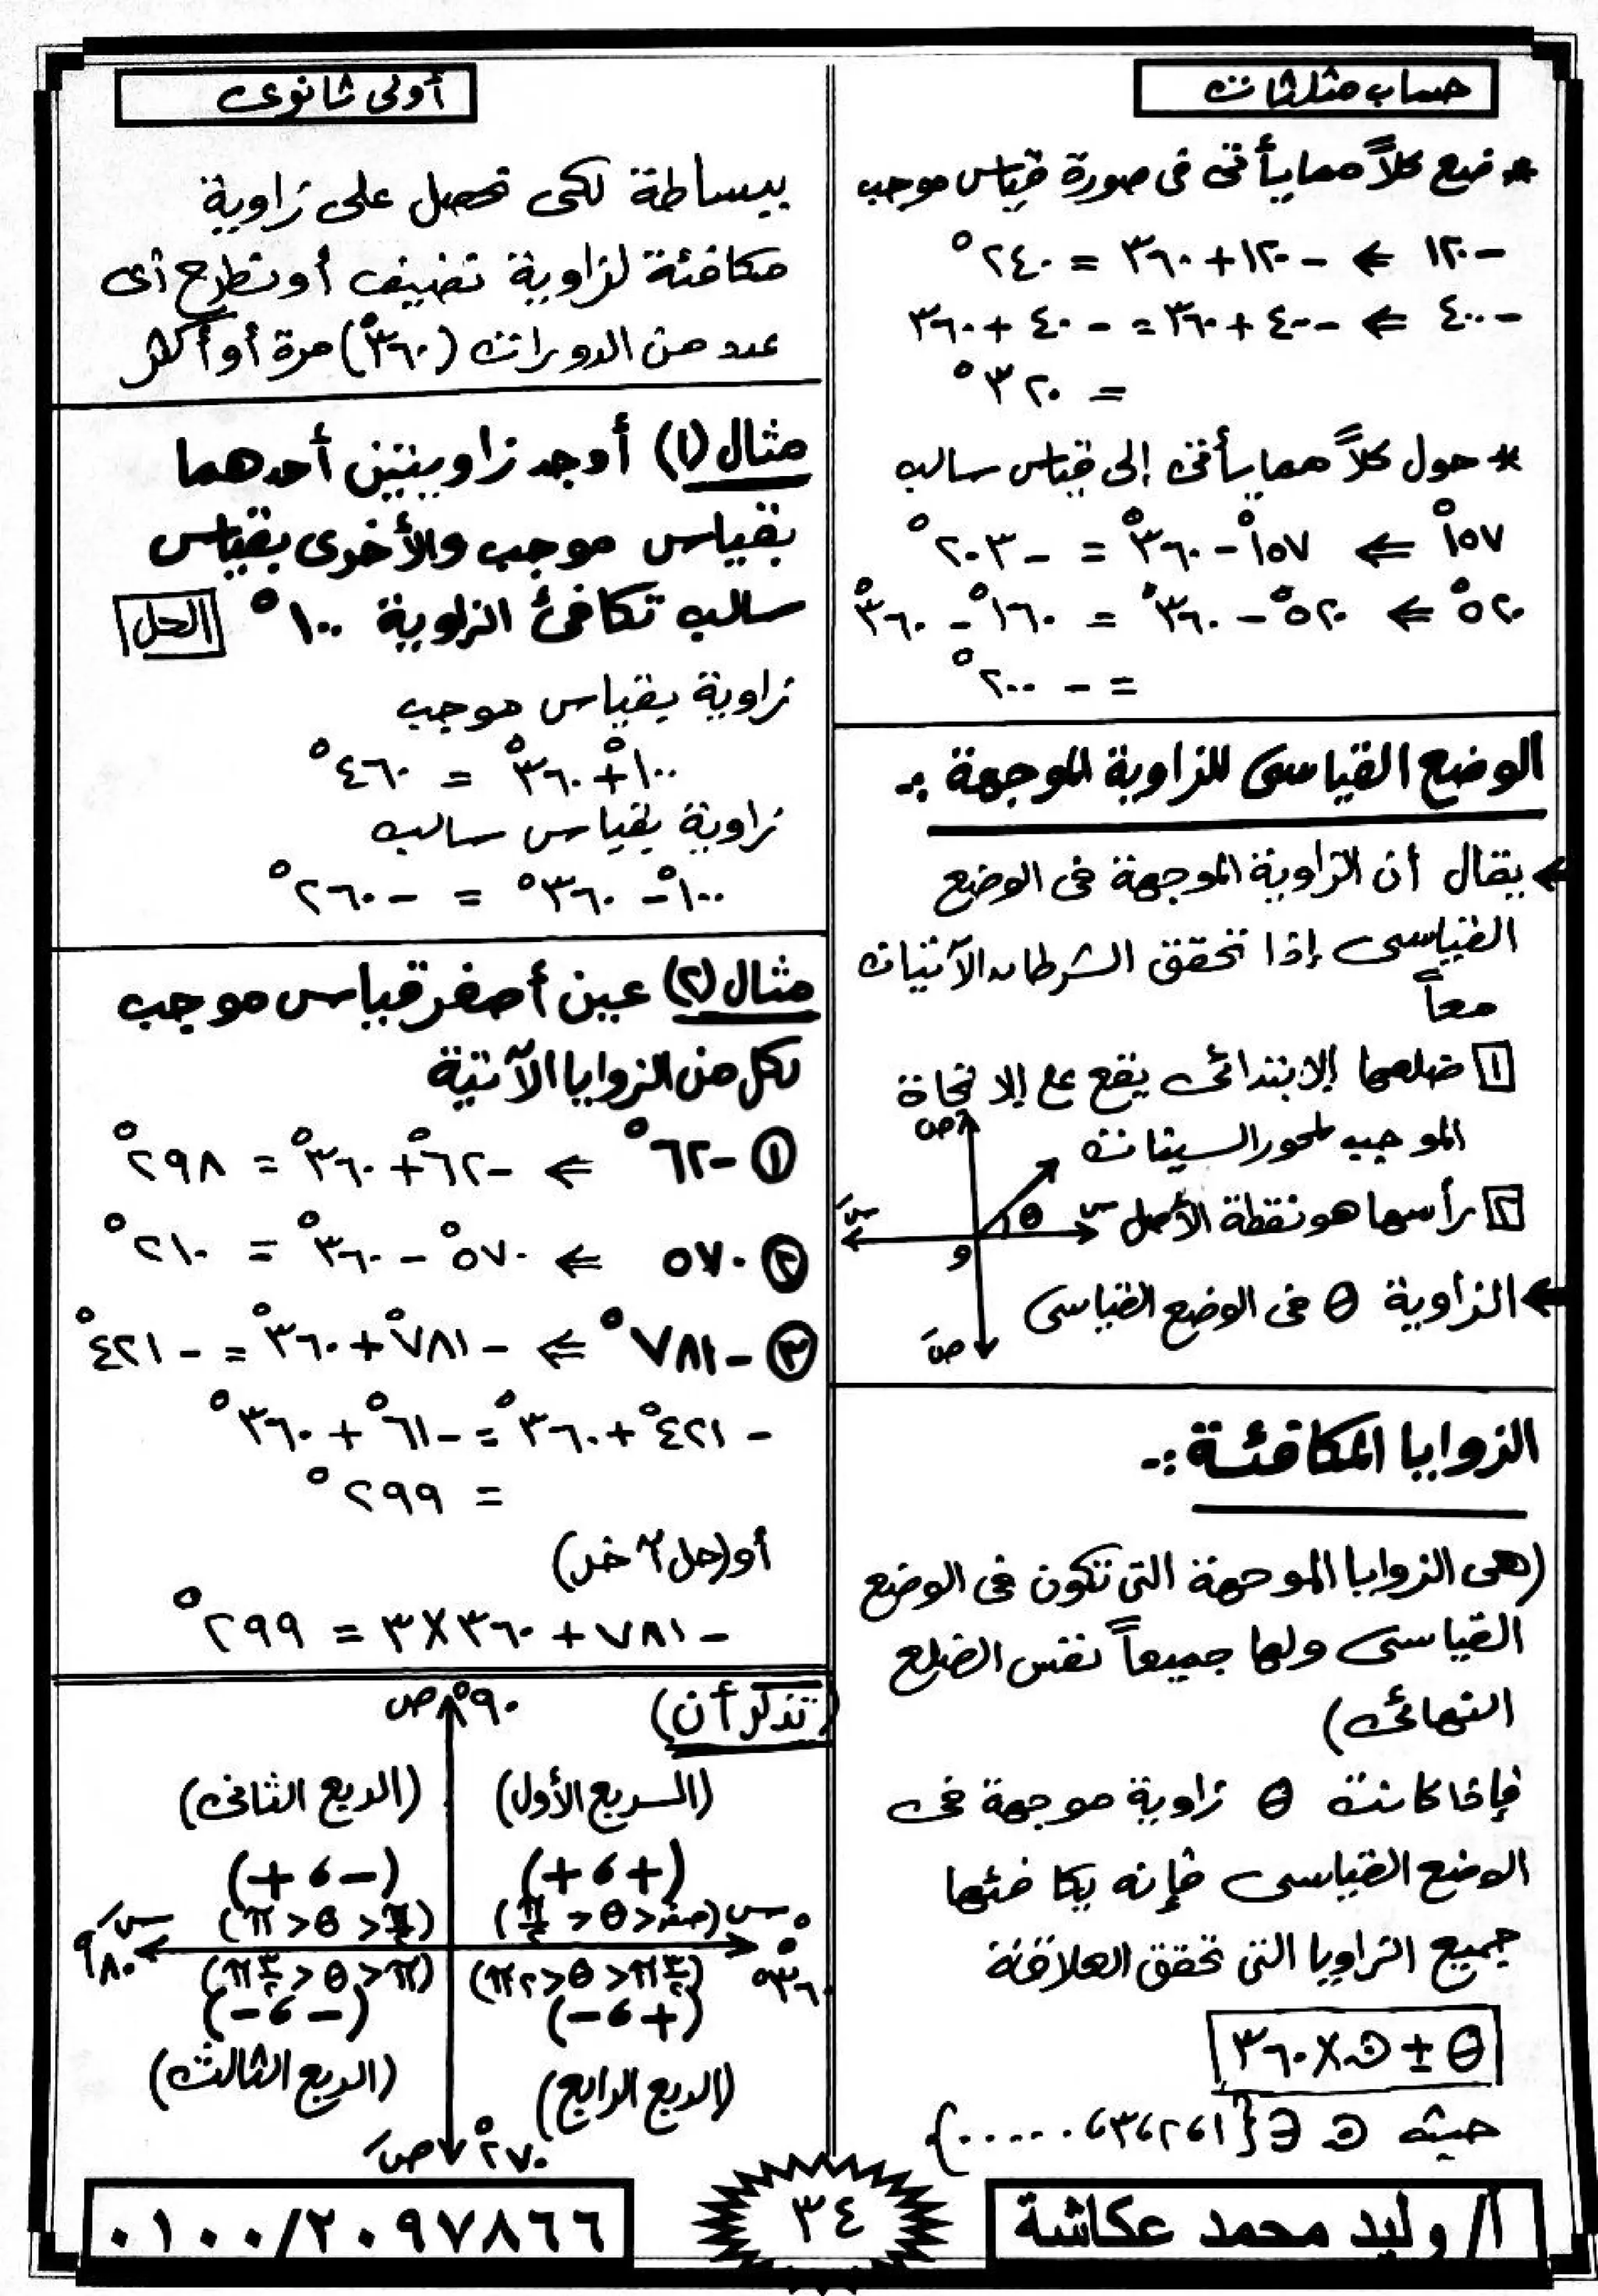 حساب مثلثات
أولى ثانوى
* ضع كلاً مما يأتى فى صورة قياس موجب
-١٢٠ ⇐ -١٢٠+٣٦٠ = ٢٤٠°
-٤٠٠ ⇐ -٤٠٠+٣٦٠ = -٤٠+٣٦٠
= ٣٢٠°
* حول كلاً مما يأتى إلى قياس سالب
١٥٧° ⇐ ١٥٧°-٣٦٠° = -٢٠٣°
٥٢٠° ⇐ ٥٢٠°-٣٦٠° = ١٦٠°-٣٦٠°
= -٢٠٠°
الوضع القياسى للزاوية الموجهة :-
← يقال أن الزاوية الموجهة فى الوضع
القياسى إذا تحقق الشرطان الآتيان
معاً
١ ضلعها الابتدائى يقع على الاتجاة
الموجب لمحور السينات
٢ رأسها هو نقطة الأصل
← الزاوية θ فى الوضع القياسى
ص
س
θ
سَ
و
صَ
الزوايا المكافئة :-
(هى الزوايا الموجهة التى تكون فى الوضع
القياسى ولها جميعاً نفس الضلع
النهائى)
فإذا كانت θ زاوية موجهة فى
الوضع القياسى فإنه يكافئها
جميع الزاويا التى تحقق العلاقة
θ ± ن×٣٦٠
حيث ن ∈ {١،٢،٣،......}
ببساطة لكى تحصل على زاوية
مكافئة لزاوية تضيف أو تطرح أى
عدد من الدورات (٣٦٠°) مرة أو أكثر
مثال (١) أوجد زاويتين أحدهما
بقياس موجب والأخرى بقياس
سالب تكافئ الزاوية ١٠٠° الحل
زاوية بقياس موجب
١٠٠°+٣٦٠° = ٤٦٠°
زاوية بقياس سالب
١٠٠°-٣٦٠° = -٢٦٠°
مثال (٢) عين أصغر قياس موجب
لكل من الزوايا الآتية
١ -٦٢° ⇐ -٦٢°+٣٦٠° = ٢٩٨°
٢ ٥٧٠ ⇐ ٥٧٠°-٣٦٠° = ٢١٠°
٣ -٧٨١° ⇐ -٧٨١°+٣٦٠° = -٤٢١°
-٤٢١°+٣٦٠° = -٦١°+٣٦٠°
= ٢٩٩°
أو (حل آخر)
-٧٨١+٣٦٠×٣ = ٢٩٩°
(تذكر أن)
٩٠° ص
(الربع الأول) (الربع الثانى)
(+،+) (-،+)
س (صفر<θ<π/٢) (π/٢<θ<π) سَ
٠° ٣٦٠° ١٨٠°
(٣π/٢<θ<٢π) (π<θ<٣π/٢)
(+،-) (-،-)
(الربع الرابع) (الربع الثالث)
٢٧٠° صَ
أ/ وليد محمد عكاشة
٣٤
٠١٠٠/٢٠٩٧٨٦٦